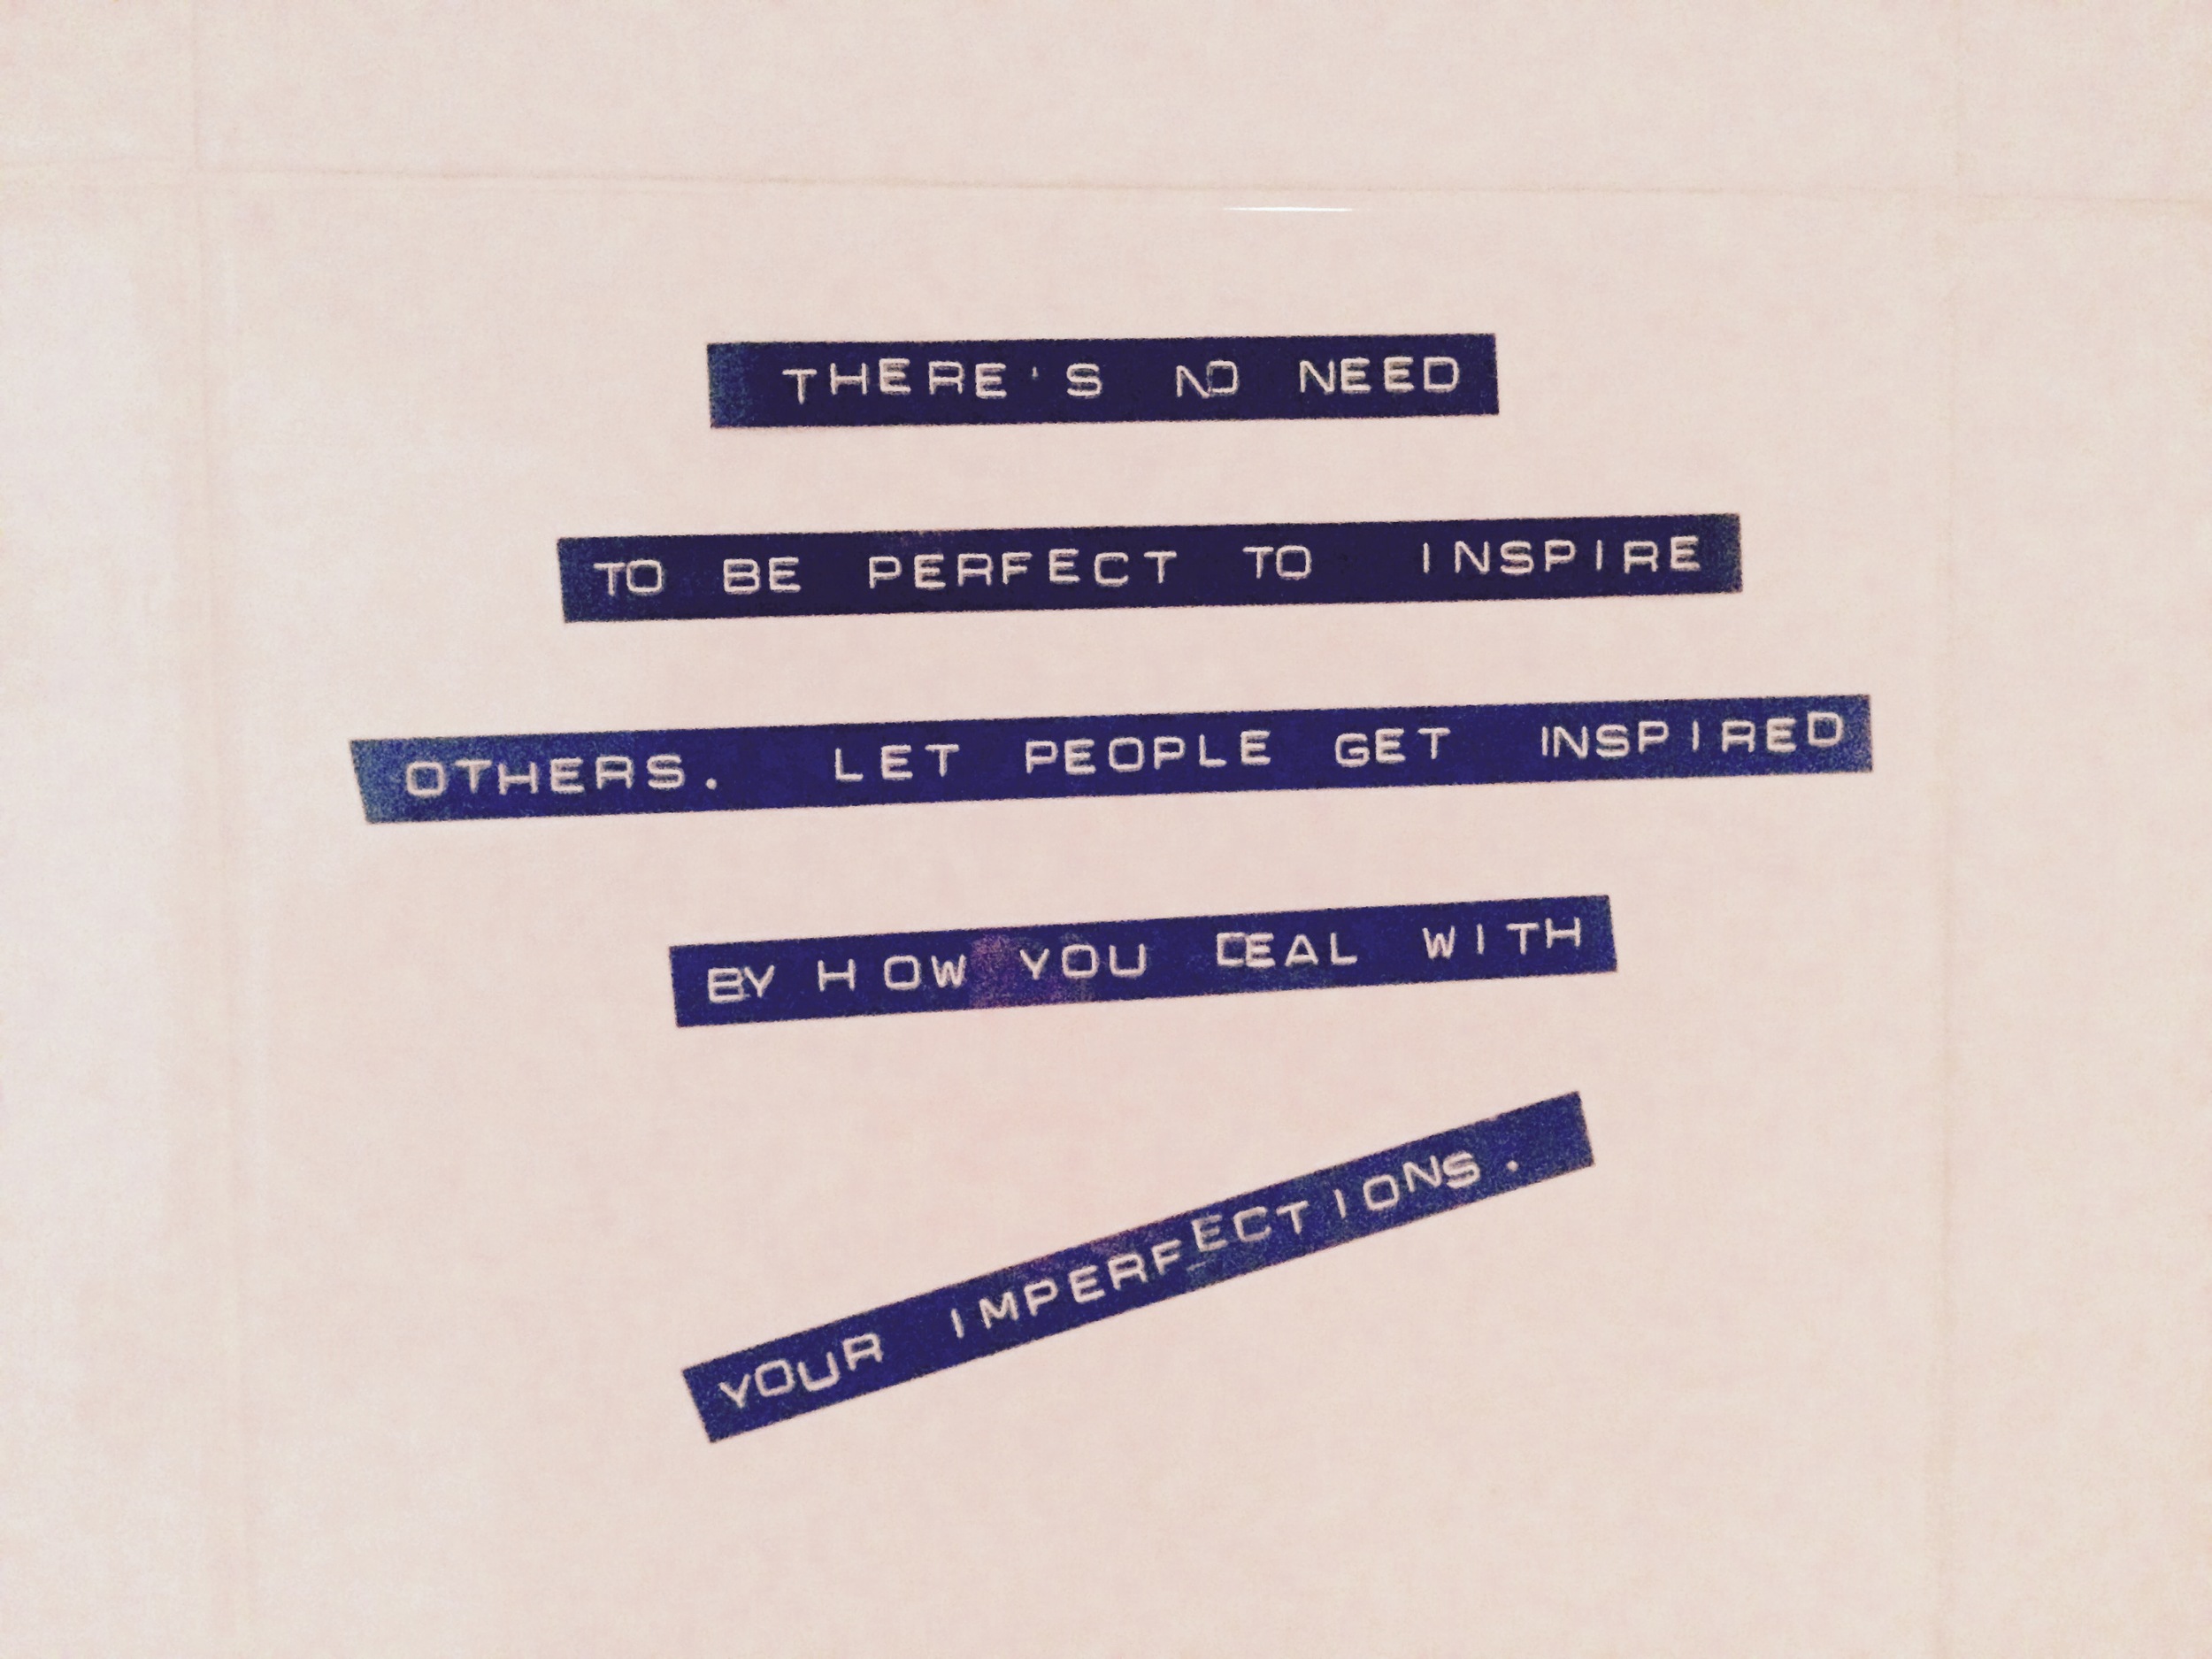 THERE'S NO NEED
TO BE PERFECT TO INSPIRE
OTHERS. LET PEOPLE GET INSPIRED
BY HOW YOU DEAL WITH
YOUR IMPERFECTIONS.